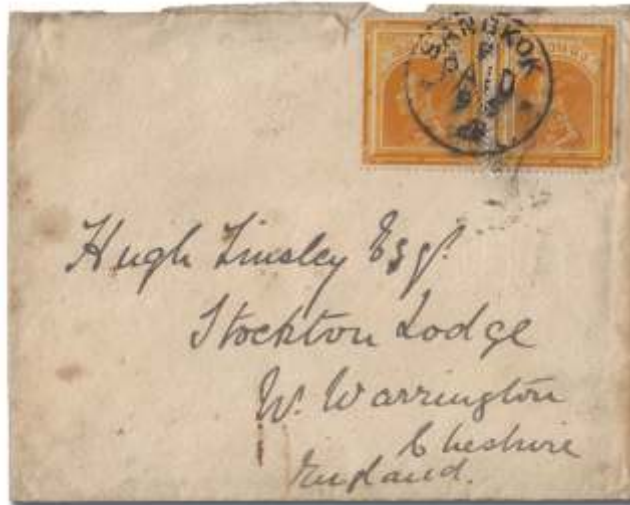 BANGKOK
Hugh Linsley Esq.
Stockton Lodge
W. Warrington
Cheshire
England.